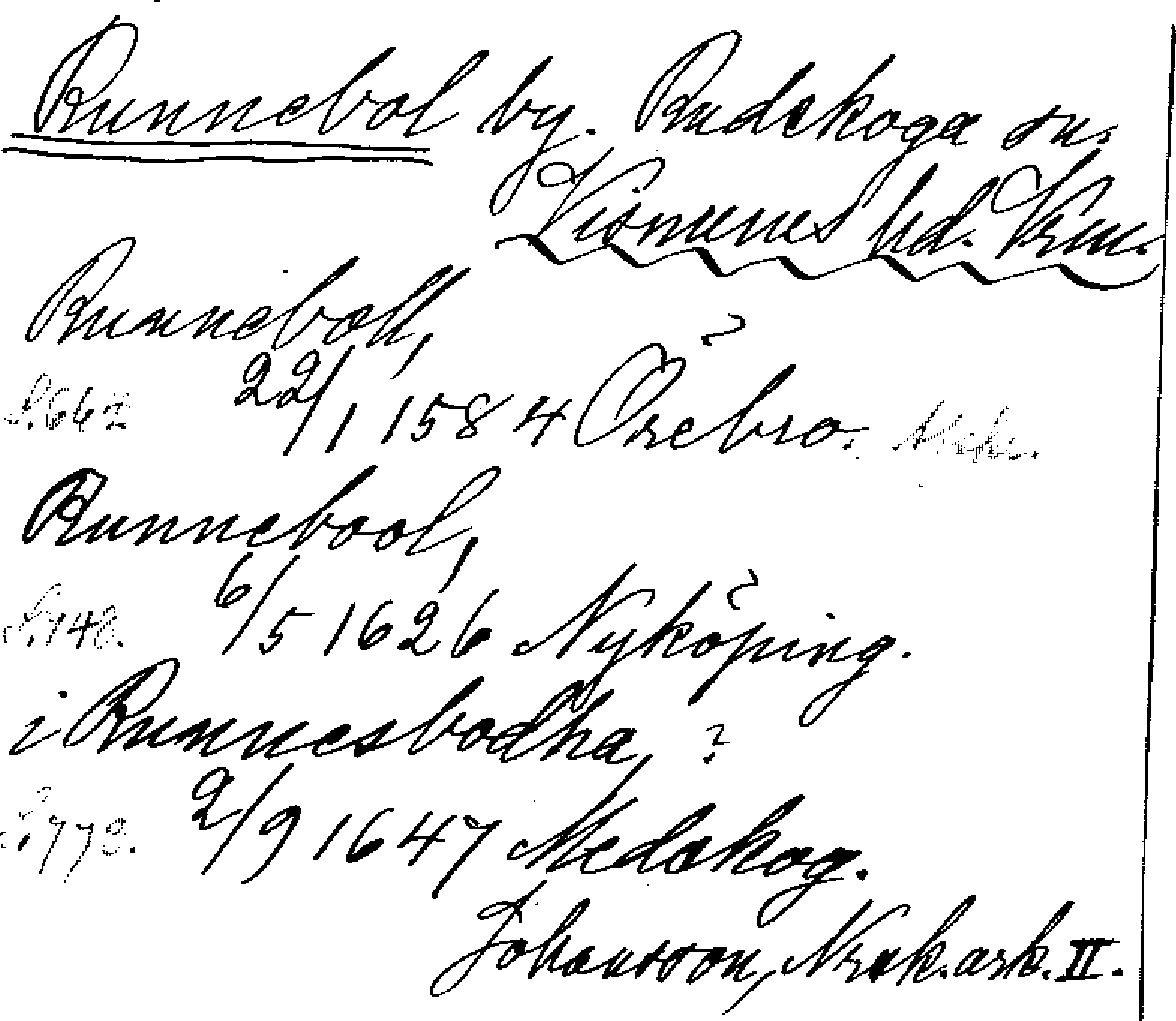 Runnebol by. Rudskoga sn.
Visnums hd. Vrm.
Runneboll,
S. 662 22/1 1584 Örebro.
Runnebool,
S. 148. 6/5 1626 Nyköping.
i Runnesbodha, ?
S. 778. 2/9 1647 Medskog.
Johansson, Nrsk. ark. II.